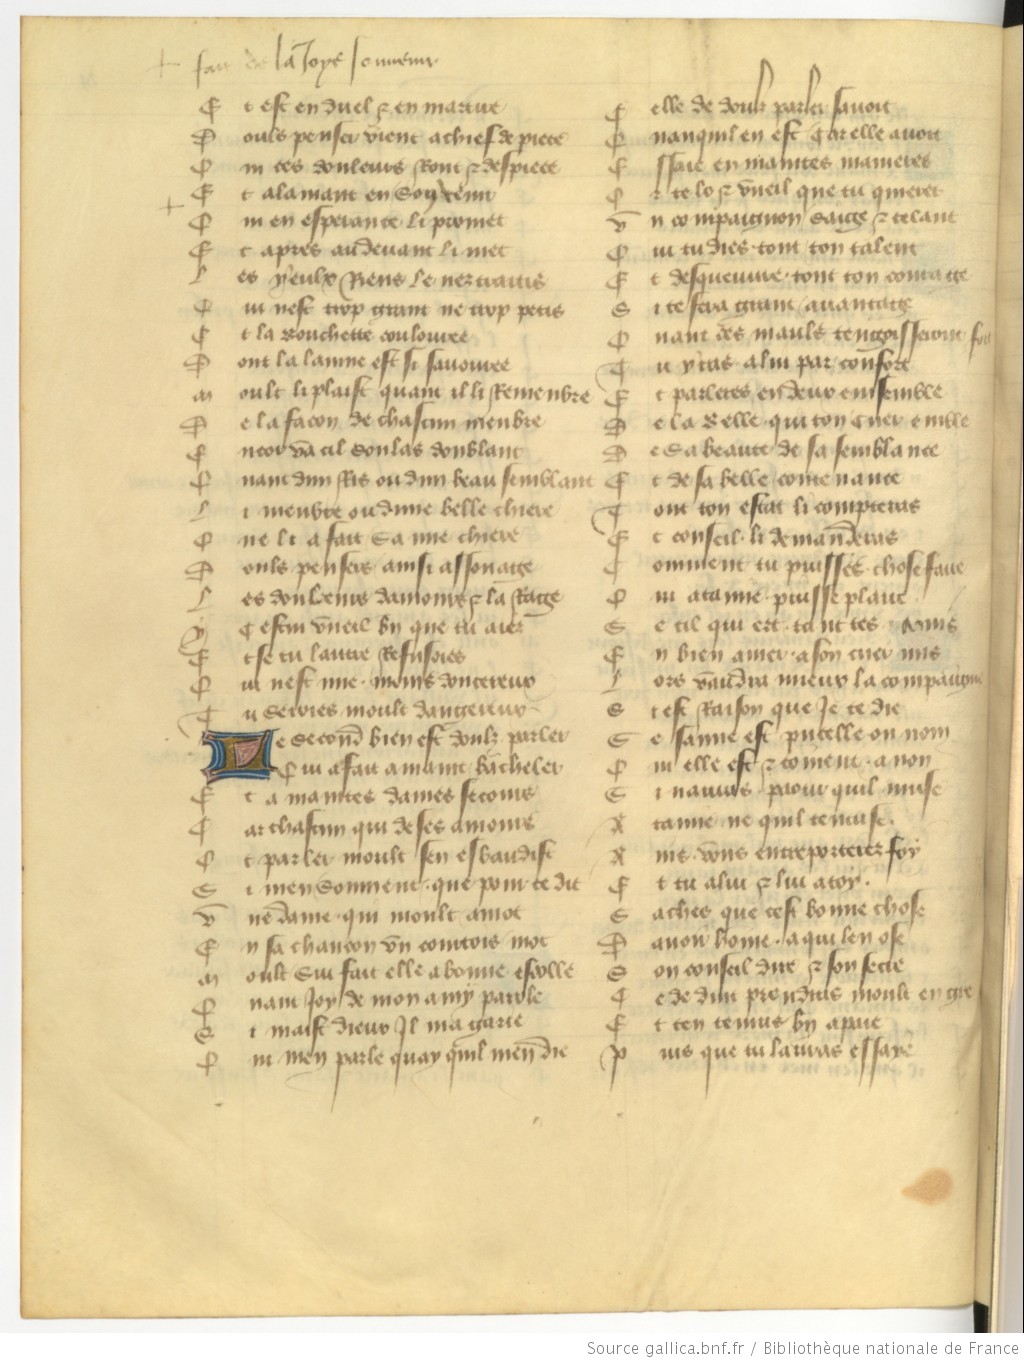 fait de la Joye souvenir
Et est en duel & en martire
Douls penser vient a chief de piece
Qui ces douleurs Ront & despiece
Et alamant en son venir
Qui en esperance li promet
Et apres audevant li met
Les yeulx Riens le nez traitis
Qui nest trop grant ne trop petis
Et la Bouchette coulouree
Dont la lainne est si savouree
Moult li plaist quant il li Remenbre
De la facon de chascun menbre
Encor va cil soulas doublant
Quant dun Ris ou dun beau semblant
Li menbre ou dune belle chiere
Que li a fait sa mie chiere
Douls pensers ainsi assouage
Les douleurs damours & la Rage
Cestui vueil by que tu aies
Et se tu lautre Refusoies
Qui nest mie moins doucereux
Tu seroies moult dangereux
Le second bien est doulz parler
Qui a fait a maint bacheler
Et a maintes dames secours
Car chascun qui de ses amours
Ot parler moult sen esbaudist
Si men souvient que pour ce dit
Une dame qui moult amot
En sa chancon un courtois mot
Moult sui fait elle a bonne escolle
Quant Joy de mon amy parole
Si maist dieux Il ma garie
Qui men parle quay quil men die
Celle de doulz parler savoit
Quanquil en est Car elle avoit
Essaie en maintes manieres
Or te lo & vueil que tu quieres
Un compaignon saige & celant
Qui tu dies tout ton talent
Et desqueuvre tout ton couraige
Si te fera grant avantaige
Quant des mauls tengoisseront fort
Tu yras a lui par confort
Et parleres en deux ensemble
De la Belle qui ton cuer emble
De sa beaute de sa semblance
Et de sa belle contenance
Tout ton estat li compteras
Et conseil li demanderas
Comment tu puisses chose faire
Qui a tamie puisse plaire
Se cil qui ert tant tes Amis
En bien amer a son cuer mis
Lors vauldra mieux la compaignie
Si est Raison que Je te die
Se samie est pucelle ou nom
Qui elle est & coment a non
Si nauras paour quil muse
A tamie ne quil tencuse
Ains vous entreporterez foy
Et tu a lui & lui a toy
Saches que cest bonne chose
Davoir home a qui len ose
Son conseil dire & son secre
Ce dedui prendras moult en gre
Et ten tenras by apaie
Puis que tu lauras essaye
Source gallica.bnf.fr / Bibliothèque nationale de France